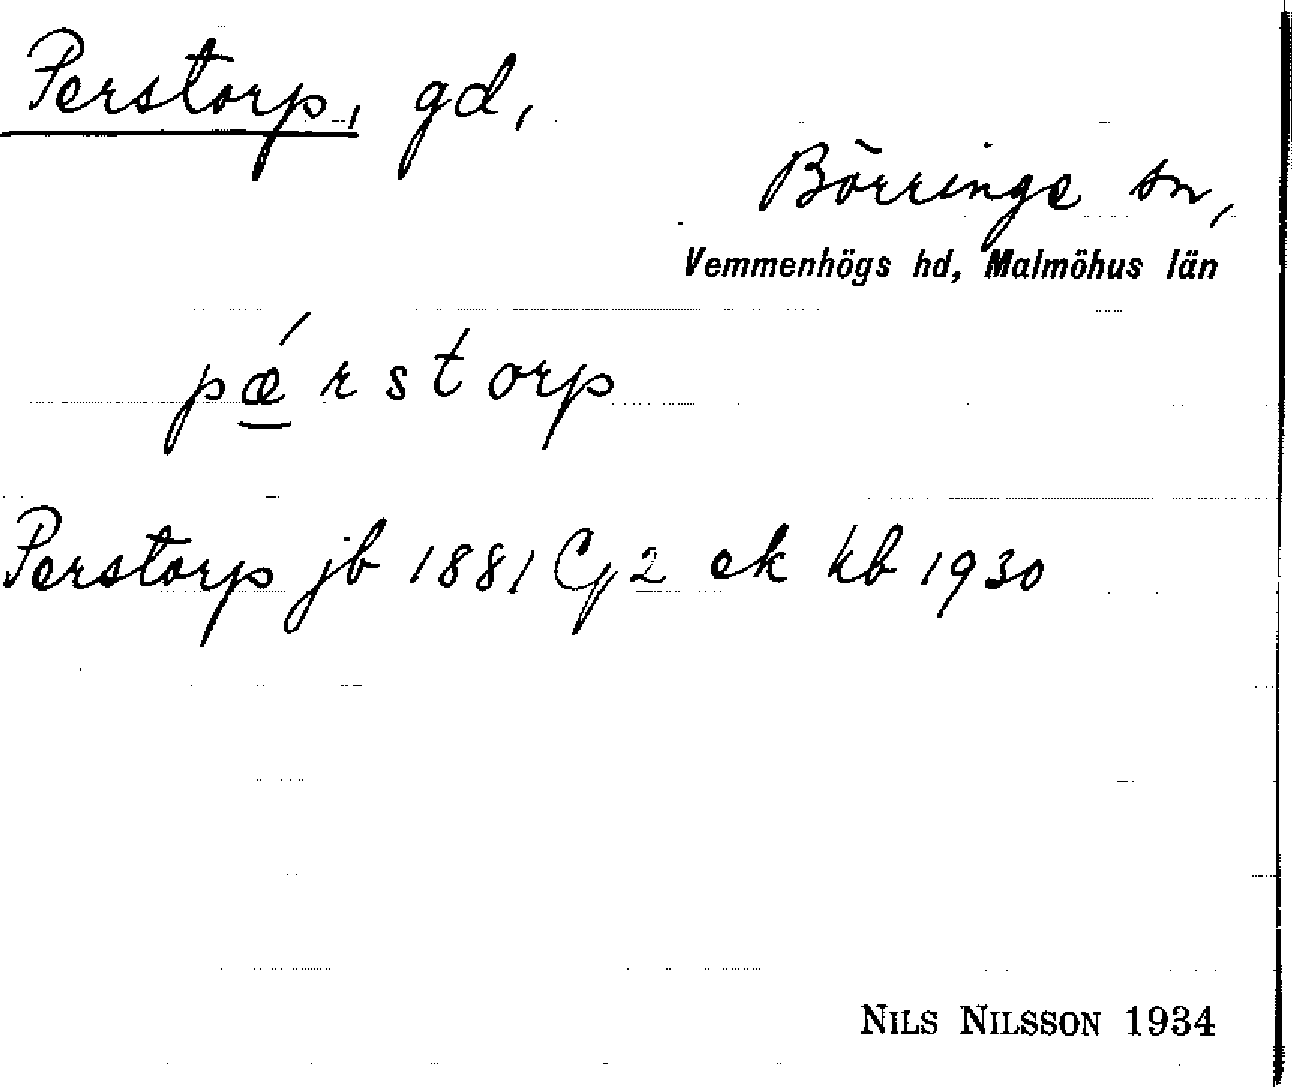 Perstorp, gd,
Börringe sn,
Vemmenhögs hd, Malmöhus län
pǽrstorp
Perstorp jb 1881 Cy 2 ek kb 1930
NILS NILSSON 1934